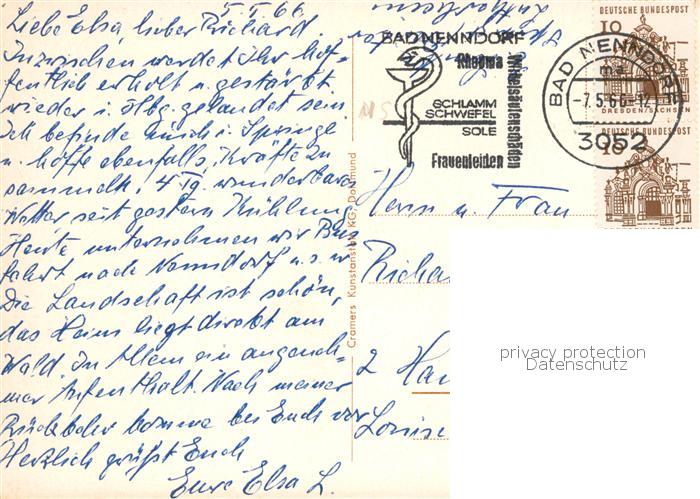 5.5.66.
Liebe Elsa, lieber Richard!
Inzwischen werdet Ihr hof-
fentlich erholt u. gestärkt
wieder i. Hbg. gelandet sein.
Ich befinde mich i. Springe
u. hoffe ebenfalls, Kräfte zu
sammeln. 4 Tg. wunderbares
Wetter seit gestern Kühlung
Heute unternehmen wir Bus
fahrt nach Nenndorf u.s.w.
Die Landschaft ist schön,
das Heim liegt direkt am
Wald. In Allem ein angeneh-
mer Aufenthalt. Nach meiner
Rückkehr komme bei Euch vor
Herzlich grüßt Euch
Eure Elsa L.
Cramers Kunstanstalt KG, Dortmund
BAD NENNDORF
Rheuma
Wirbelsäulenschäden
SCHLAMM
SCHWEFEL
SOLE
Frauenleiden
BAD NENNDORF
-7.5.66-12
3052
DEUTSCHE BUNDESPOST
10
DRESDEN/SACHSEN
DEUTSCHE BUNDESPOST
10
Herrn u. Frau
Richa
2 Ham
Louise
privacy protection
Datenschutz